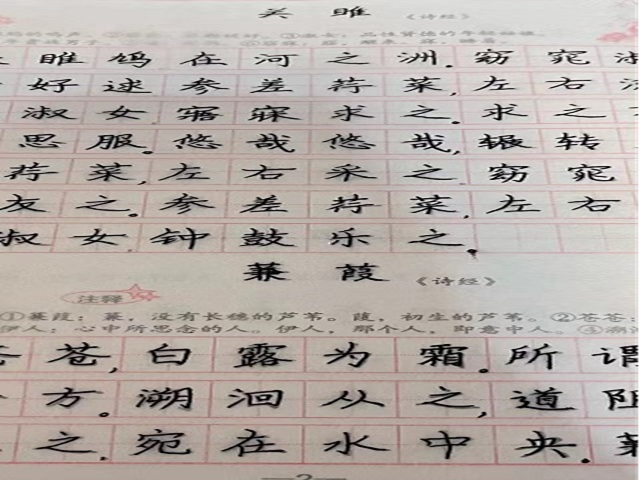 关雎 《诗经》
雎鸠在河之洲.窈窕淑
好逑参差荇菜,左右
淑女.寤寐求之.求之
思服.悠哉悠哉,辗转
荇菜,左右采之.窈窕
友之.参差荇菜,左右
淑女.钟鼓乐之.
蒹葭 《诗经》
注释
①蒹葭:蒹,没有长穗的芦苇。葭,初生的芦苇。②苍苍:
伊人:心中所思念的人。伊人,那个人,即意中人。④溯洄
苍,白露为霜.所谓
方。溯洄从之,道阻
之.宛在水中央.蒹